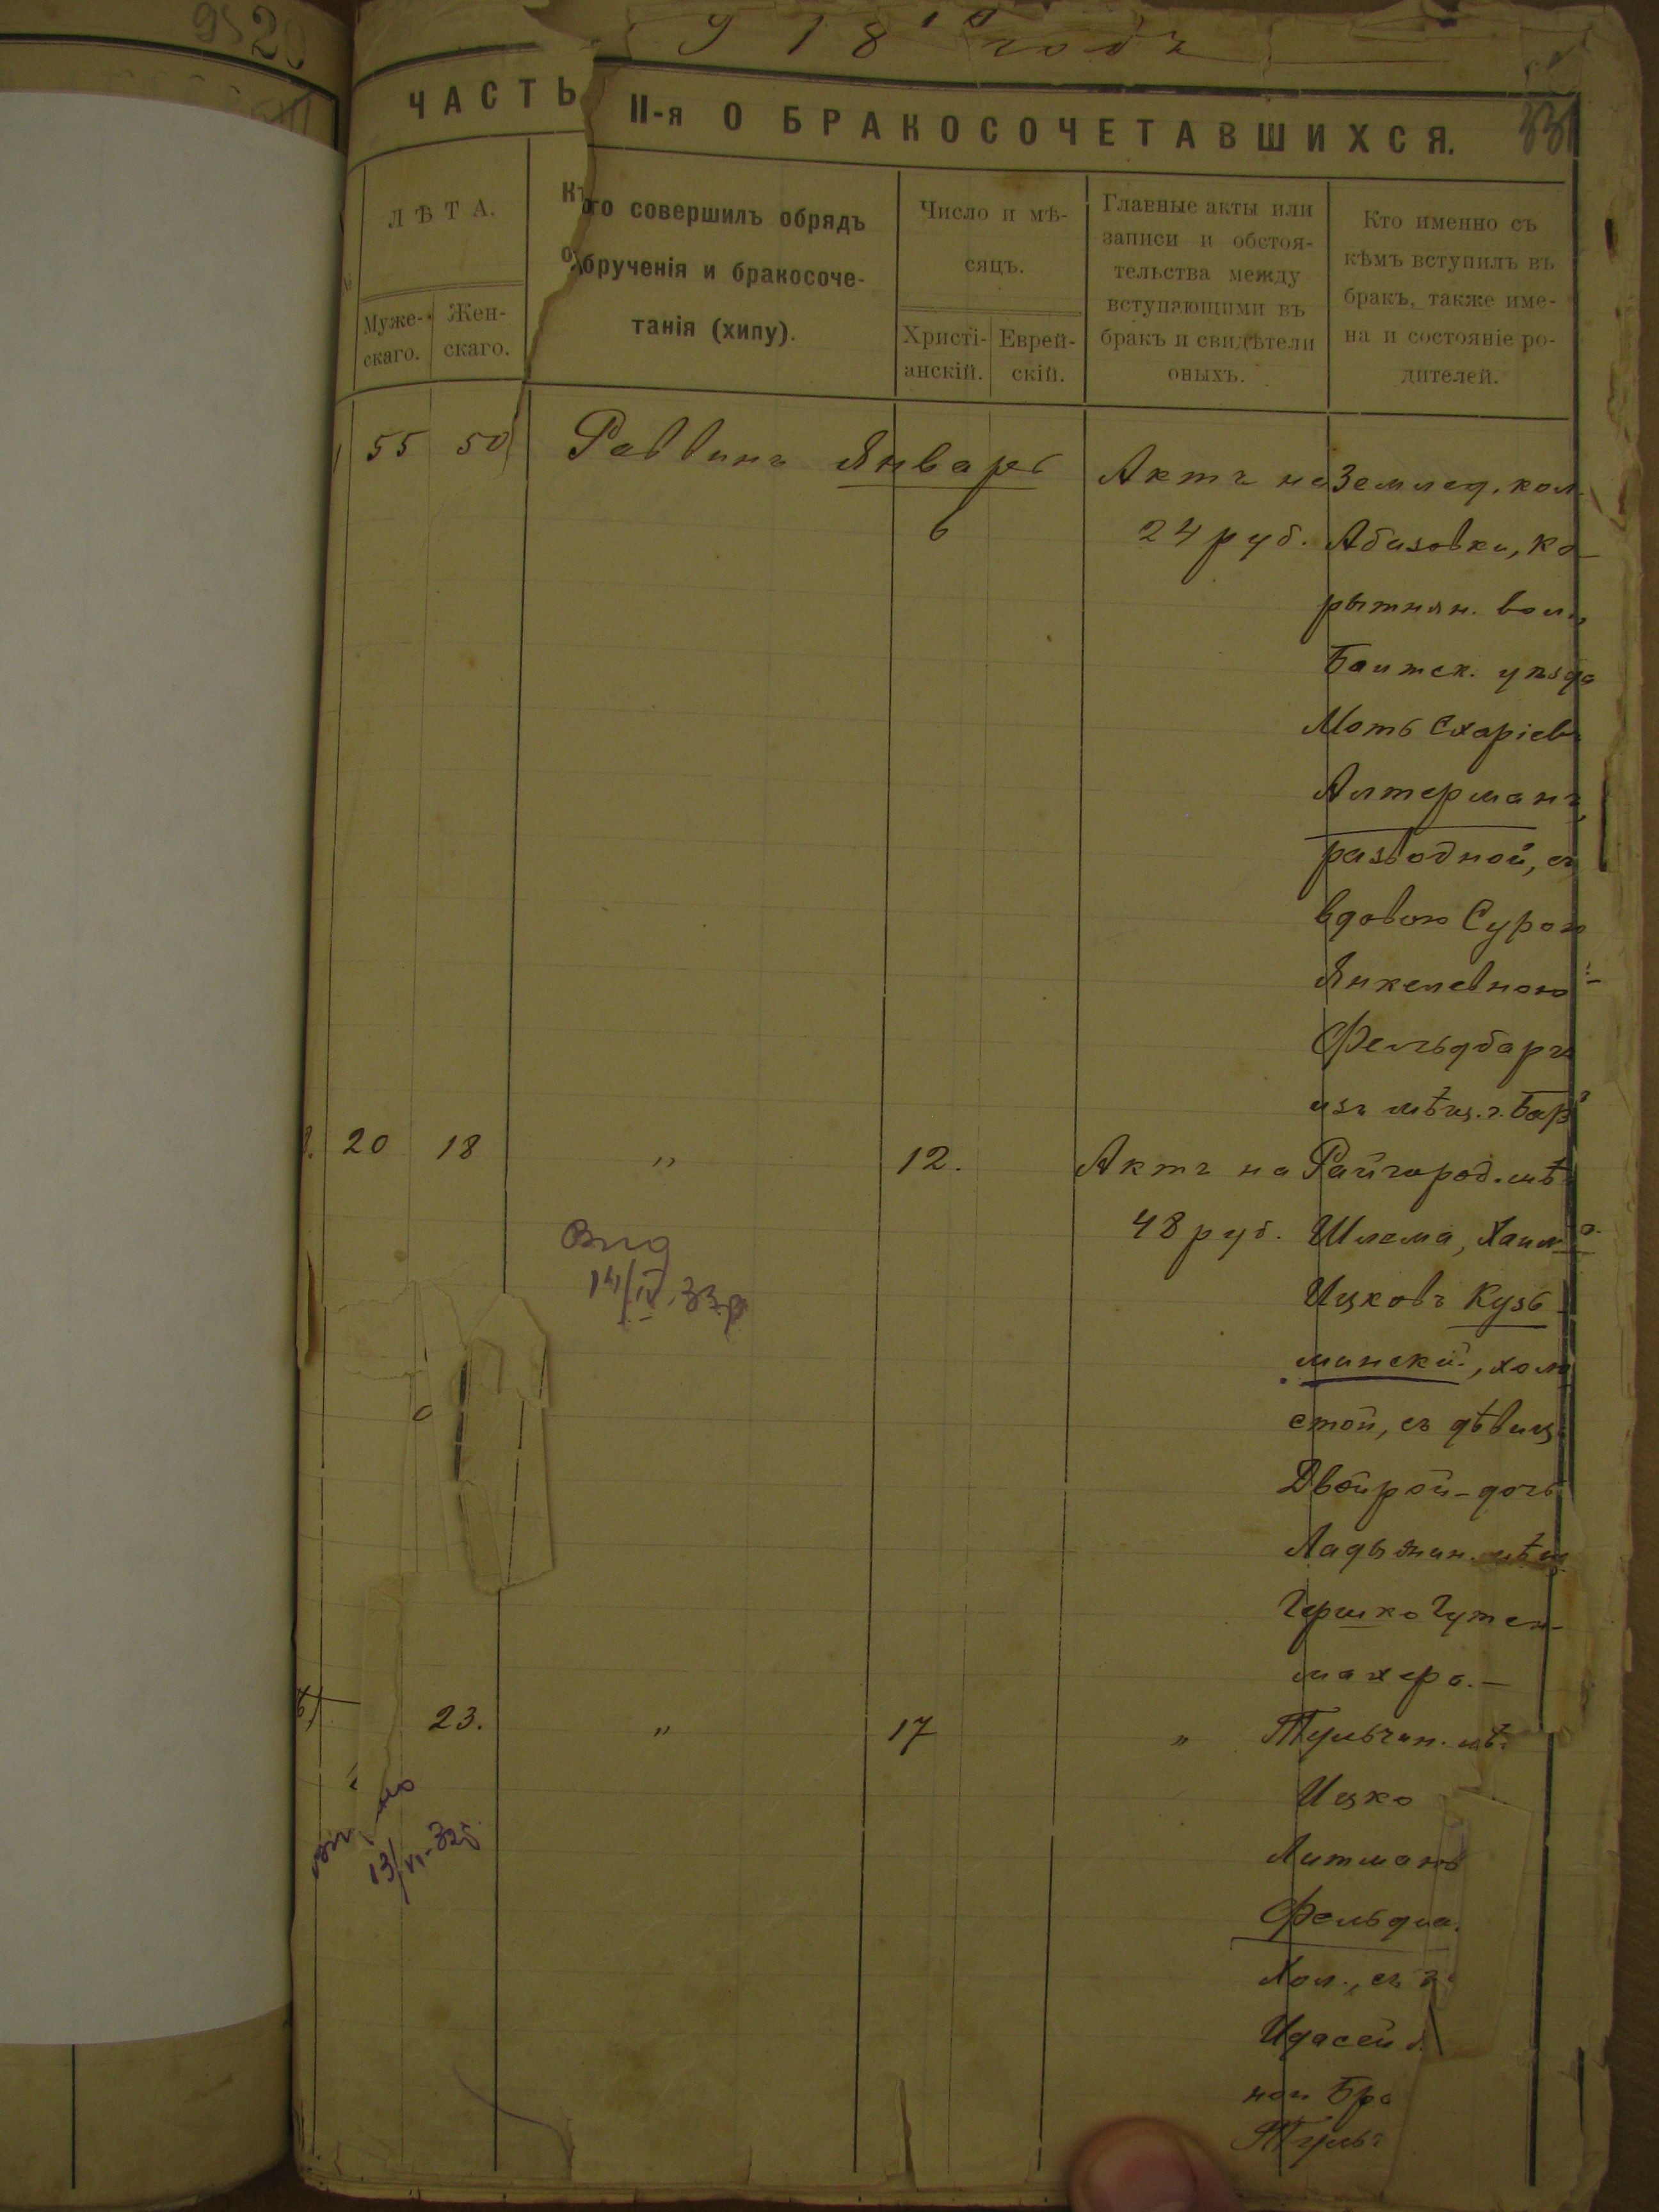 9529
918 годъ
ЧАСТЬ II-я О БРАКОСОЧЕТАВШИХСЯ.
ЛѢТА.
Муже-
скаго.
Жен-
скаго.
Кто совершилъ обрядъ
обрученія и бракосоче-
танія (хипу).
Число и мѣ-
сяцъ.
Христі-
анскій.
Еврей-
скій.
Главные акты или
записи и обстоя-
тельства между
вступающими въ
бракъ и свидѣтели
оныхъ.
Кто именно съ
кѣмъ вступилъ въ
бракъ, также име-
на и состояніе ро-
дителей.
1 55 50 Раввинъ Январь
6
Актъ на
24 руб.
Землед. кол.
Абазовки, Ко-
рытнян. вол.,
Балтск. уѣзда
Моть Схаріевъ
Алтерманъ,
разводной, съ
вдовою Сурою
Янкелевною
Фельдбаръ
изъ мѣщ. г. Бар
20 18 " 12.
Актъ на
48 руб.
Райгород. мѣ
Шлема, Хаим
Ицковъ Кузь-
минскій, холо
стой, съ дѣвиц
Двойрой - дочь
Ладыжин. мѣщ.
Гершко Гутен-
махера. -
14/IV. 33 р
23. " 17 "
13/VI-32 г
Тульчин. мѣ
Ицко
Литмановъ
Фельдма
Хол., съ
Идасей
ной Бро
Тульч